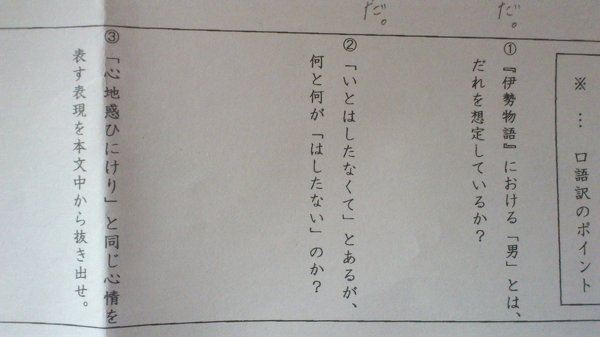 だ。
だ。
※ … 口語訳のポイント
① 『伊勢物語』における「男」とは、
だれを想定しているか？
② 「いとはしたなくて」とあるが、
何と何が「はしたない」のか？
③ 「心地惑ひにけり」と同じ心情を
表す表現を本文中から抜き出せ。